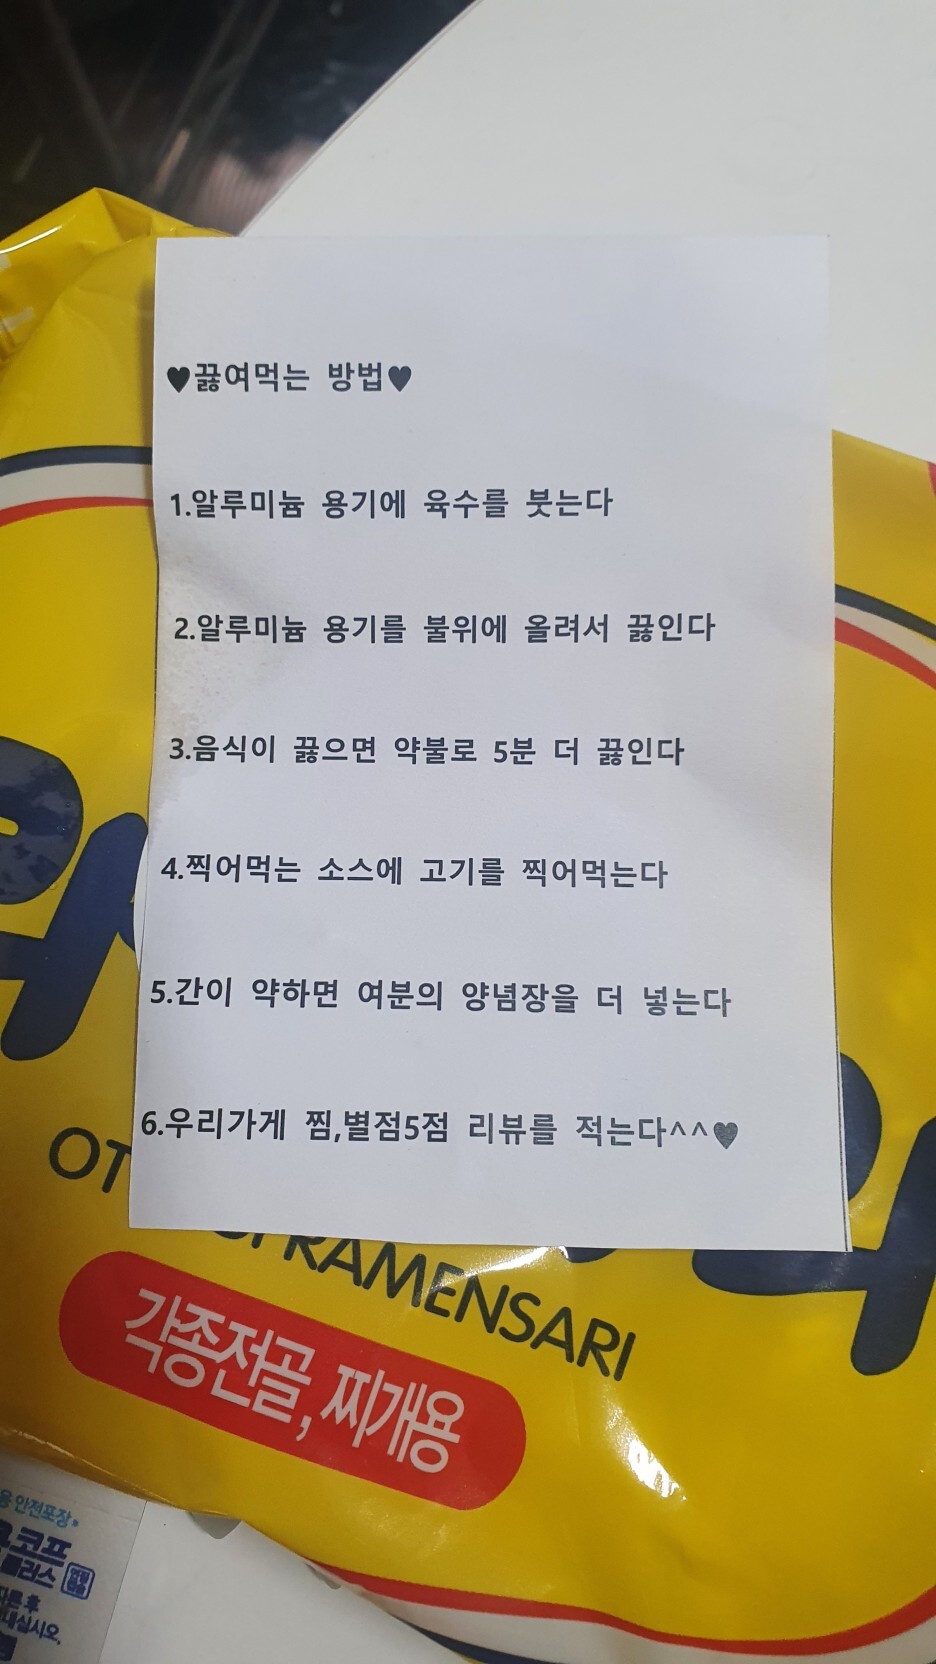 ♥끓여먹는 방법♥
1.알루미늄 용기에 육수를 붓는다
2.알루미늄 용기를 불위에 올려서 끓인다
3.음식이 끓으면 약불로 5분 더 끓인다
4.찍어먹는 소스에 고기를 찍어먹는다
5.간이 약하면 여분의 양념장을 더 넣는다
6.우리가게 찜,별점5점 리뷰를 적는다^^♥
RAMENSARI
각종전골, 찌개용
용 안전포장
코프
플러스